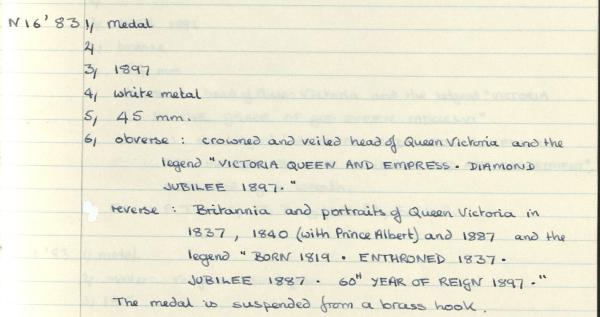 N16'83 1, medal
2,
3, 1897
4, white metal
5, 45 mm.
6, obverse : crowned and veiled head of Queen Victoria and the
legend "VICTORIA QUEEN AND EMPRESS · DIAMOND
JUBILEE 1897."
reverse : Britannia and portraits of Queen Victoria in
1837, 1840 (with Prince Albert) and 1887 and the
legend "BORN 1819 · ENTHRONED 1837 ·
JUBILEE 1887 · 60TH YEAR OF REIGN 1897 ·"
The medal is suspended from a brass hook.